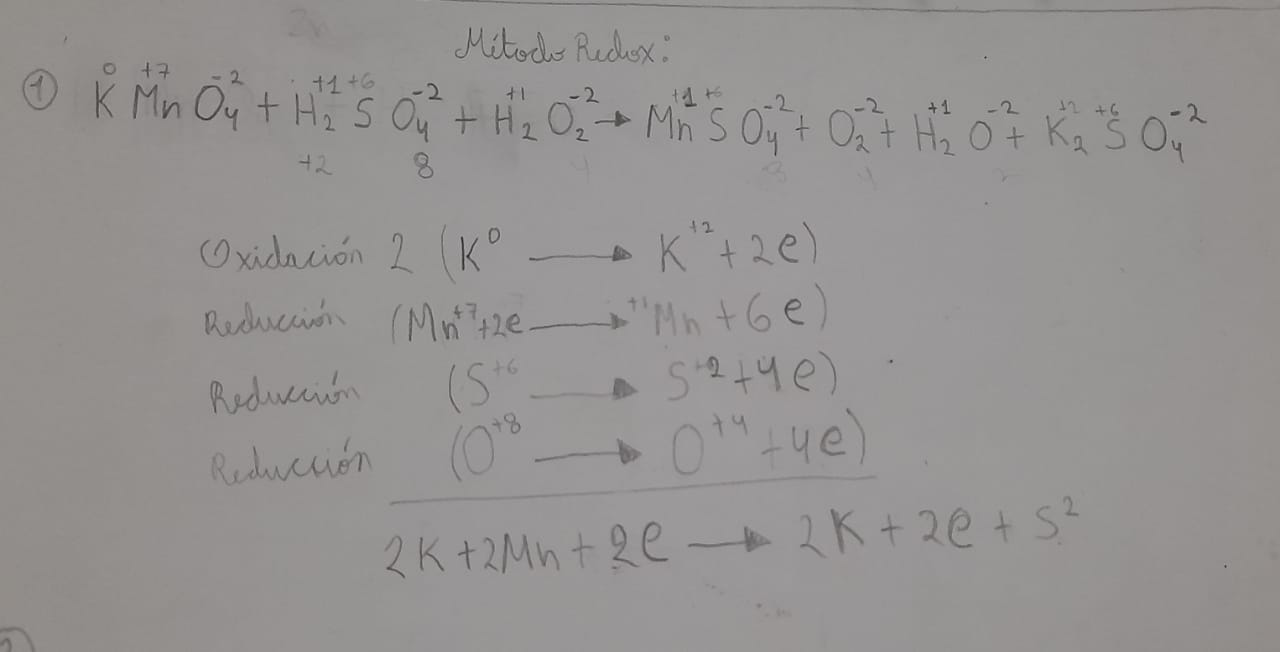 Método Redox:
① K⁰ Mn⁺⁷ O₄⁻² + H₂⁺¹ S⁺⁶ O₄⁻² + H₂⁺¹ O₂⁻² → Mn⁺¹ S⁺⁶ O₄⁻² + O₂⁻² + H₂⁺¹ O⁻² + K₂⁺² S⁺⁶ O₄⁻²
+2 8
Oxidación 2 (K⁰ → K⁺² + 2e)
Reducción (Mn⁺⁷+2e → ⁺¹Mn + 6e)
Reducción (S⁺⁶ → S⁺² + 4e)
Reducción (O⁺⁸ → O⁺⁴ + 4e)
2K + 2Mn + 2e → 2K + 2e + S²